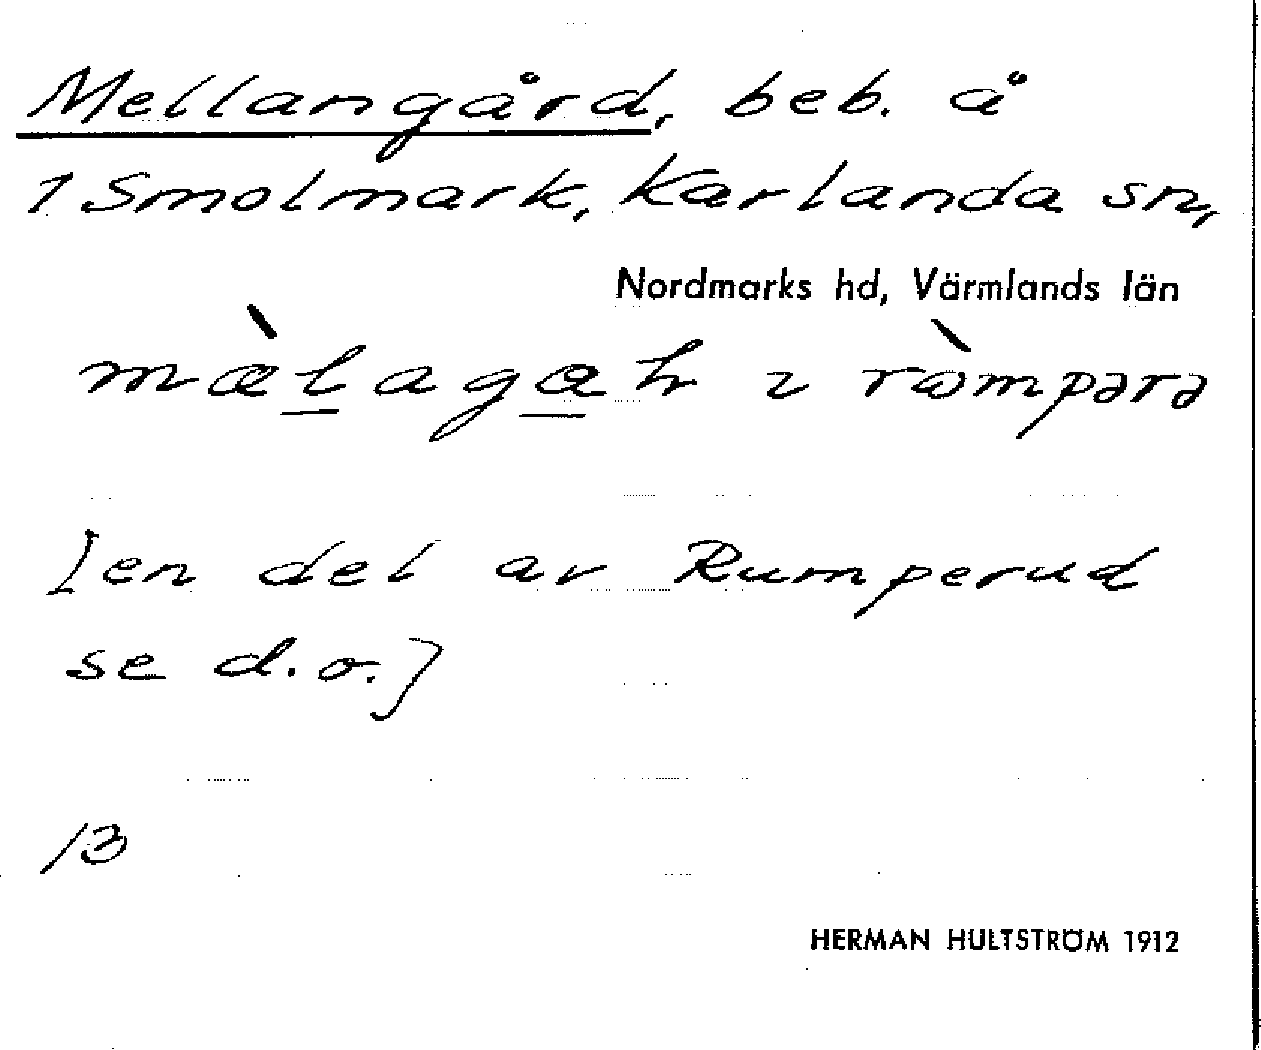 Mellangård, beb. å
1 Smolmark, Karlanda sn,
Nordmarks hd, Värmlands län
[en del av Rumperud
se d.o.]
13
HERMAN HULTSTRÖM 1912